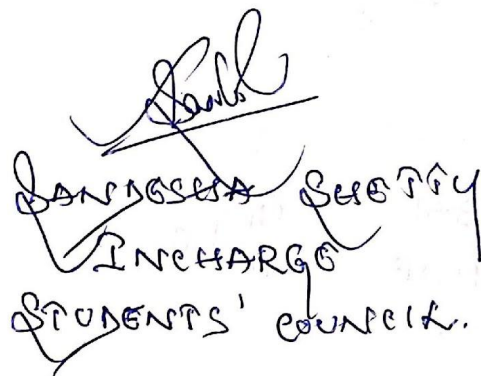 SANDESHA SHETTY
INCHARGE
STUDENTS' COUNCIL.